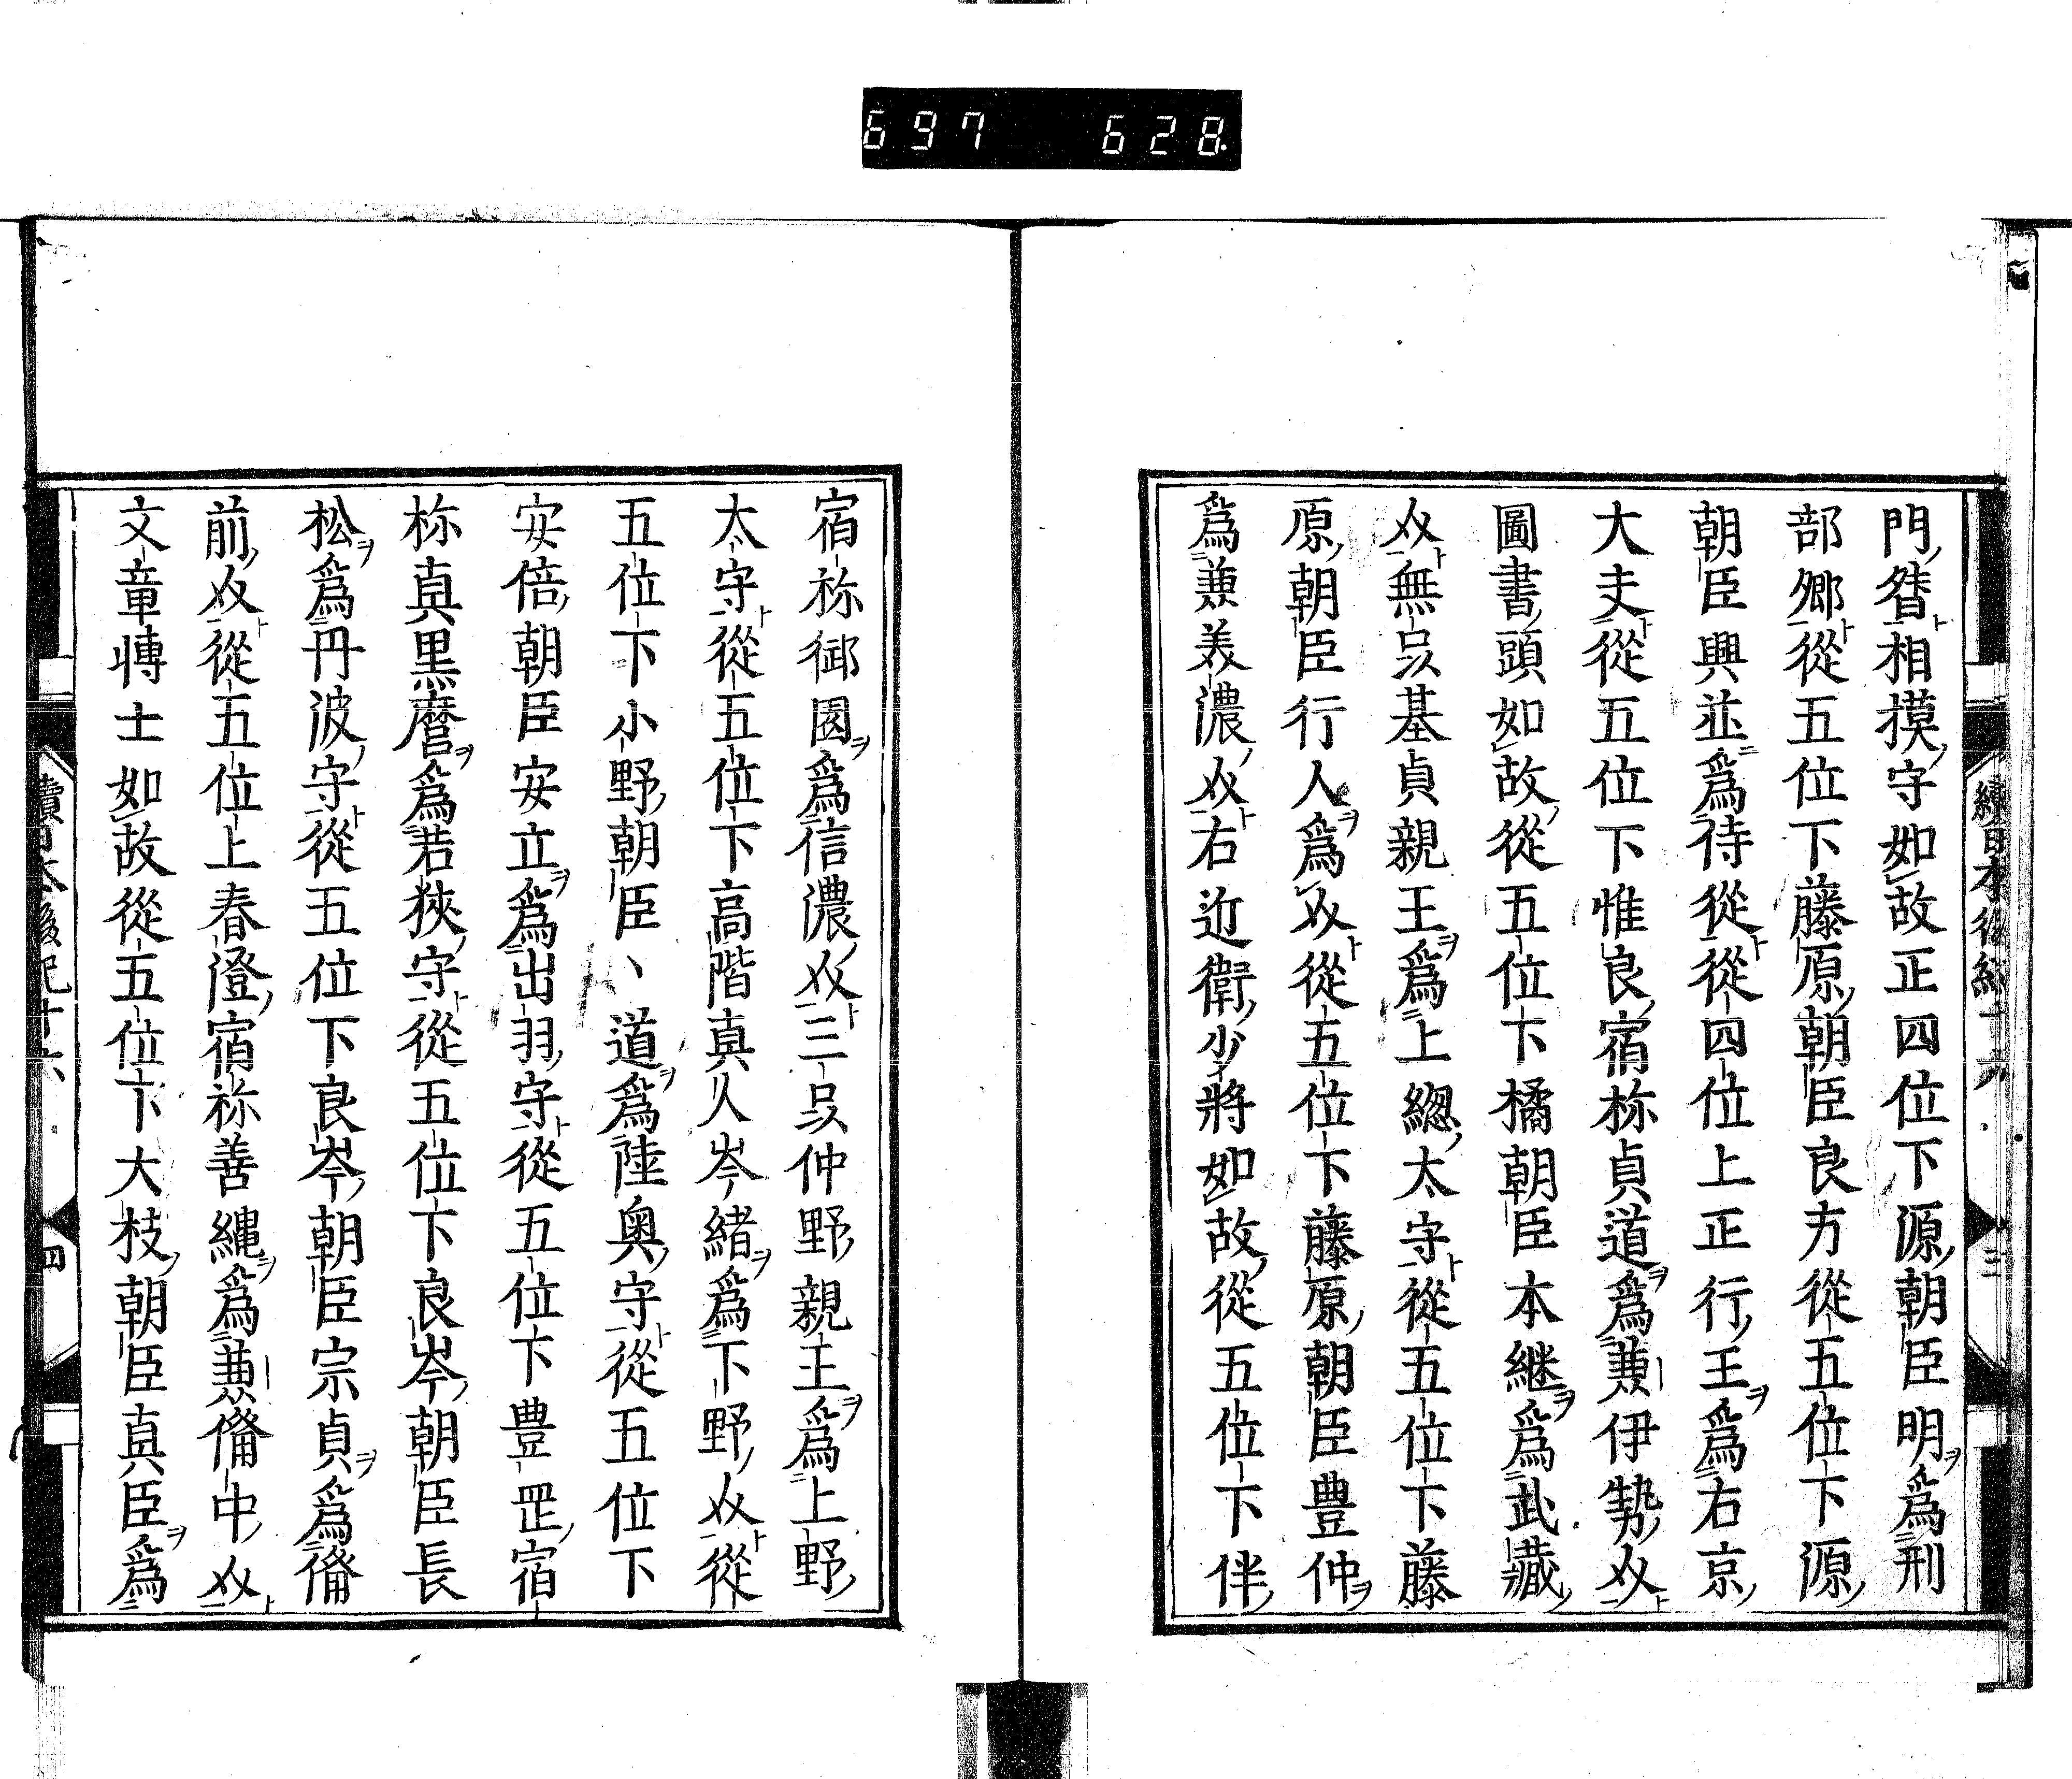 697 628
門督相摸守如故正四位下源朝臣明爲刑
部卿從五位下藤原朝臣良方從五位下源
朝臣興並爲侍從從四位上正行王爲右京
大夫從五位下惟良宿祢貞道爲兼伊勢𡗗
圖書頭如故從五位下橘朝臣本継爲武藏
𡗗無品基貞親王爲上総太守從五位下藤
原朝臣行人爲𡗗從五位下藤原朝臣豊仲
爲兼美濃𡗗右近衛少將如故從五位下伴
宿祢御園爲信濃𡗗三品仲野親王爲上野
太守從五位下高階真人岑緒爲下野𡗗從
五位下小野朝臣、道爲陸奥守從五位下
安倍朝臣安立爲出羽守從五位下豊罡宿
祢真黒麿爲若狹守從五位下良岑朝臣長
松爲丹波守從五位下良岑朝臣宗貞爲備
前𡗗從五位上春澄宿祢善縄爲兼備中𡗗
文章博士如故從五位下大枝朝臣真臣爲
續日本後紀十六
四